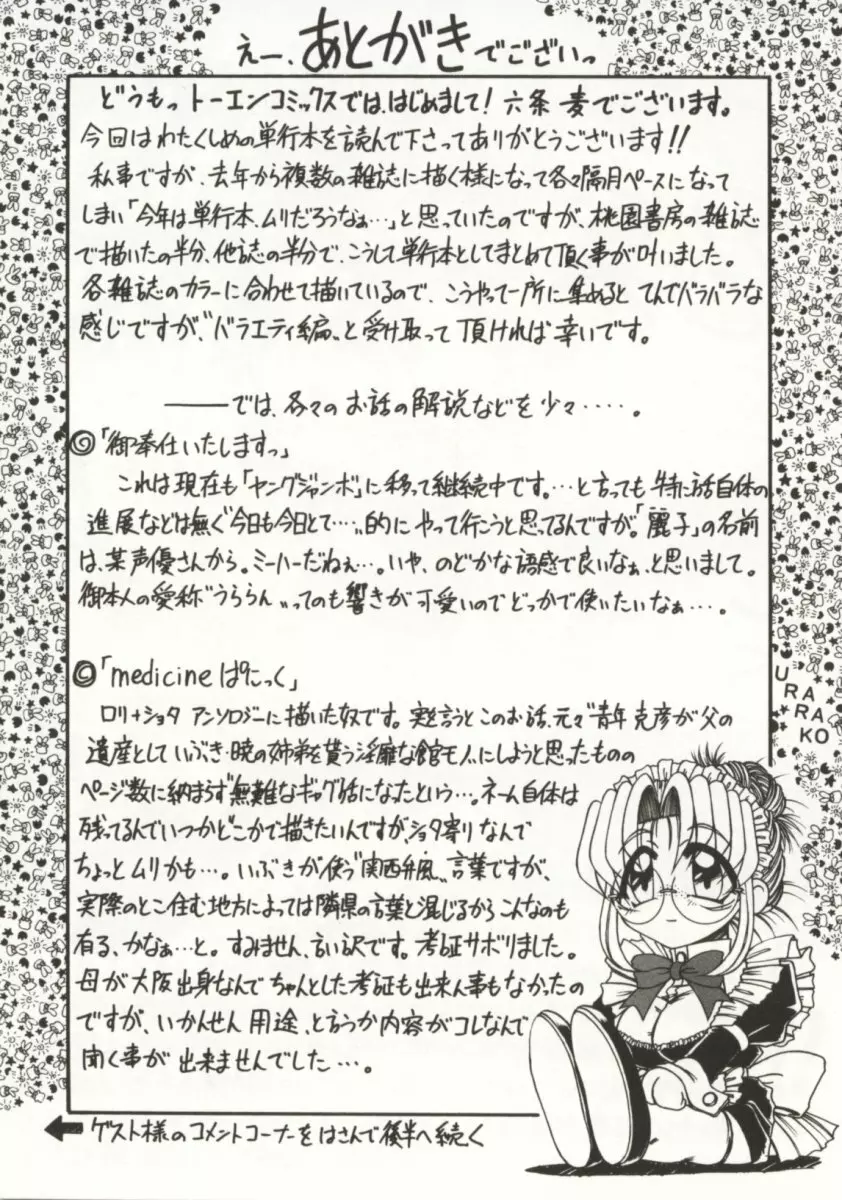 えー、あとがきでございっ
どうもっ トーエンコミックスでは、はじめまして! 六条 麦でございます。
今回はわたくしめの単行本を読んで下さってありがとうございます!!
私事ですが、去年から複数の雑誌に描く様になって各々隔月ペースになって
しまい「今年は単行本、ムリだろうなぁ…」と思っていたのですが、桃園書房の雑誌
で描いたの半分、他誌の半分で、こうして単行本としてまとめて頂く事が叶いました。
各雑誌のカラーに合わせて描いているので、こうやって一所に集めると てんでバラバラな
感じですが、“バラエティ編〟と受け取って頂ければ幸いです。
――では、各々のお話の解説などを少々・・・・・。
◎「御奉仕いたしますっ」
これは現在も「ヤングジャンボ」に移って継続中です。…と言っても 特に話自体の
進展などは無く“今日も今日とて…〟的にやって行こうと思ってるんですが。「麗子」の名前
は、某声優さんから。ミーハーだねぇ…。いや、のどかな語感で良いなぁ、と思いまして。
御本人の愛称“うららん〟ってのも響きが可愛いのでどっかで使いたいなぁ…。
◎「medicineぱにっく」
ロリ+ショタ アンソロジーに描いた奴です。実を言うとこのお話、元々“青年 克彦が父の
遺産として いぶき・暁の姉弟を貰う淫靡な館モノ〟にしようと思ったものの
ページ数に納まらず“無難なギャグ話になったという…。ネーム自体は
残ってるんでいつかどこかで描きたいんですが、ショタ寄りなんで
ちょっとムリかも…。いぶきが使う“関西弁風〟言葉ですが、
実際のとこ住む地方によっては隣県の言葉と混じるからこんなのも
有る、かなぁ…と。すみません、言い訳です。考証サボりました。
母が大阪出身なんで ちゃんとした考証も出来ん事もなかったの
ですが、いかんせん 用途、と言うか内容がコレなんで
聞く事が出来ませんでした…。
URARAKO
← ゲスト様のコメントコーナーをはさんで後半へ続く